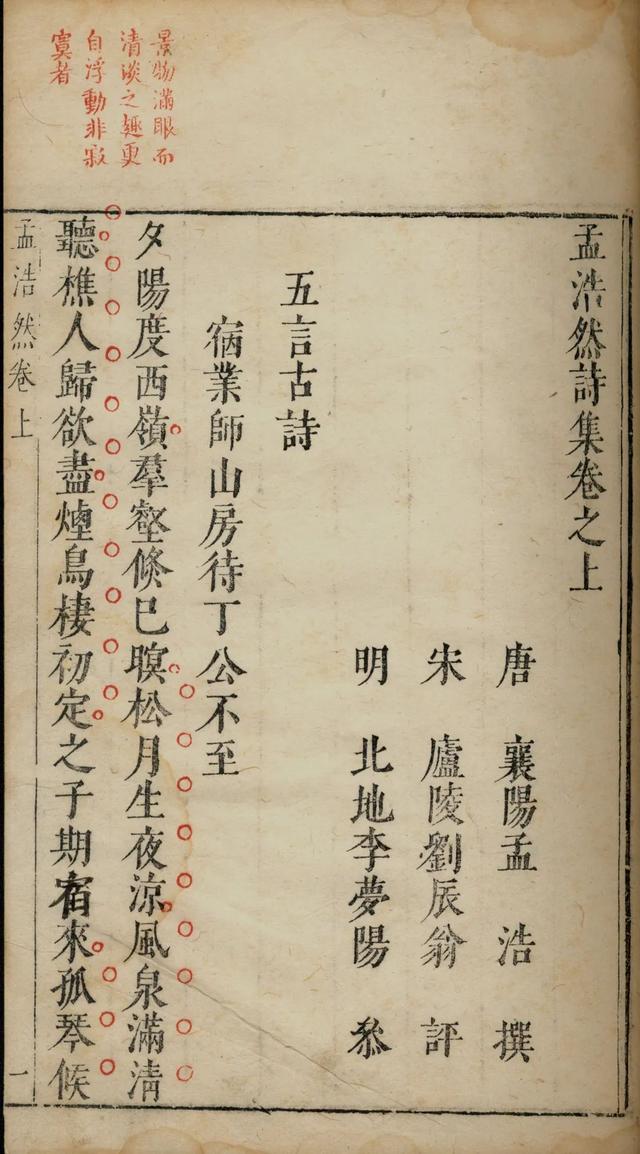 景物滿眼而
清淡之趣更
自浮動非寂
寞者
孟浩然詩集卷之上
唐 襄陽孟 浩 撰
宋 廬陵劉辰翁 評
明 北地李夢陽 叅
五言古詩
宿業師山房待丁公不至
夕陽度西嶺羣壑倏已暝松月生夜涼風泉滿清
聽樵人歸欲盡煙鳥棲初定之子期宿來孤琴候
孟浩然卷上 一